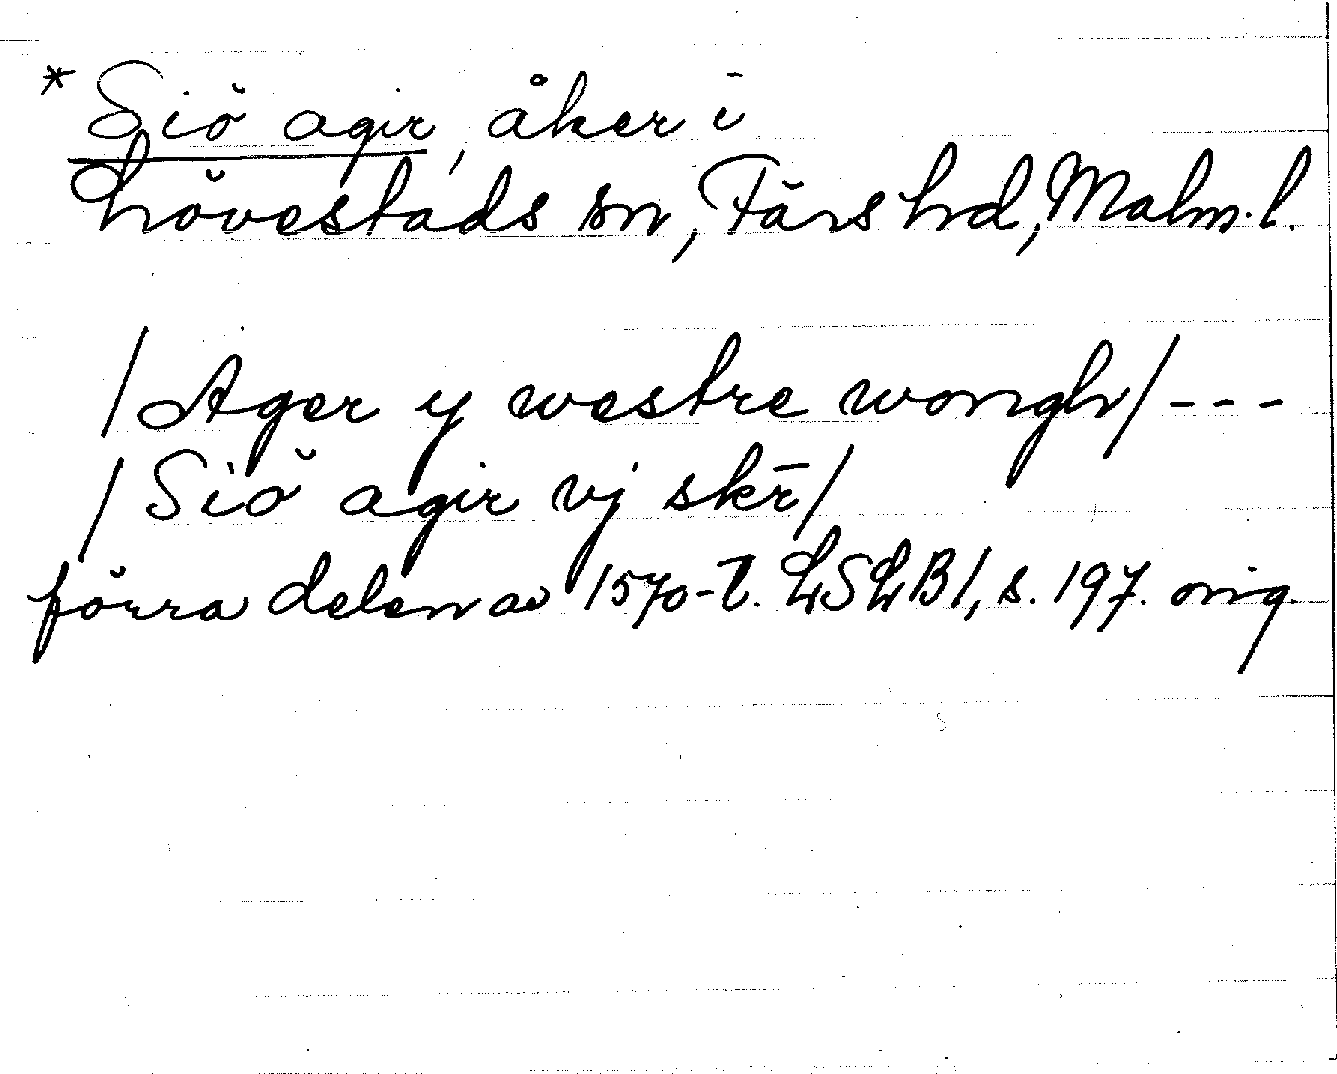 * Siö agir, åker i
Lövestads sn, Färs hd, Malm. l.
/Ager y westre wongh/ - - -
/Siö agir vj skr̄/
förra delen av 1570-t. LSLB1, s. 197. orig.